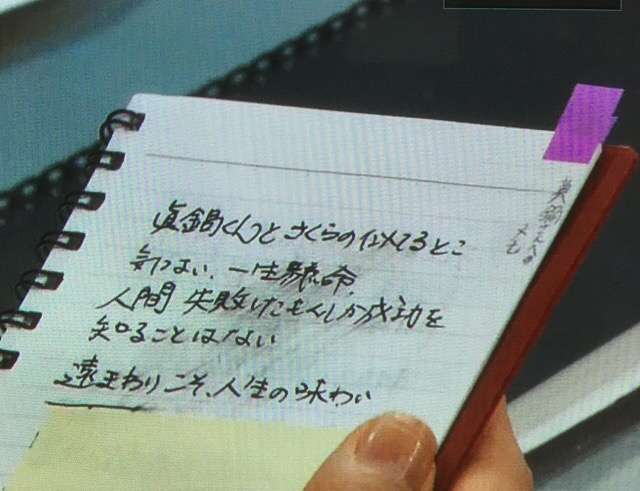 眞鍋くんとさくらの似てるとこ
気づよい、一生懸命
人間 失敗したもんしか成功を
知ることはない
遠まわりこそ、人生の味わい